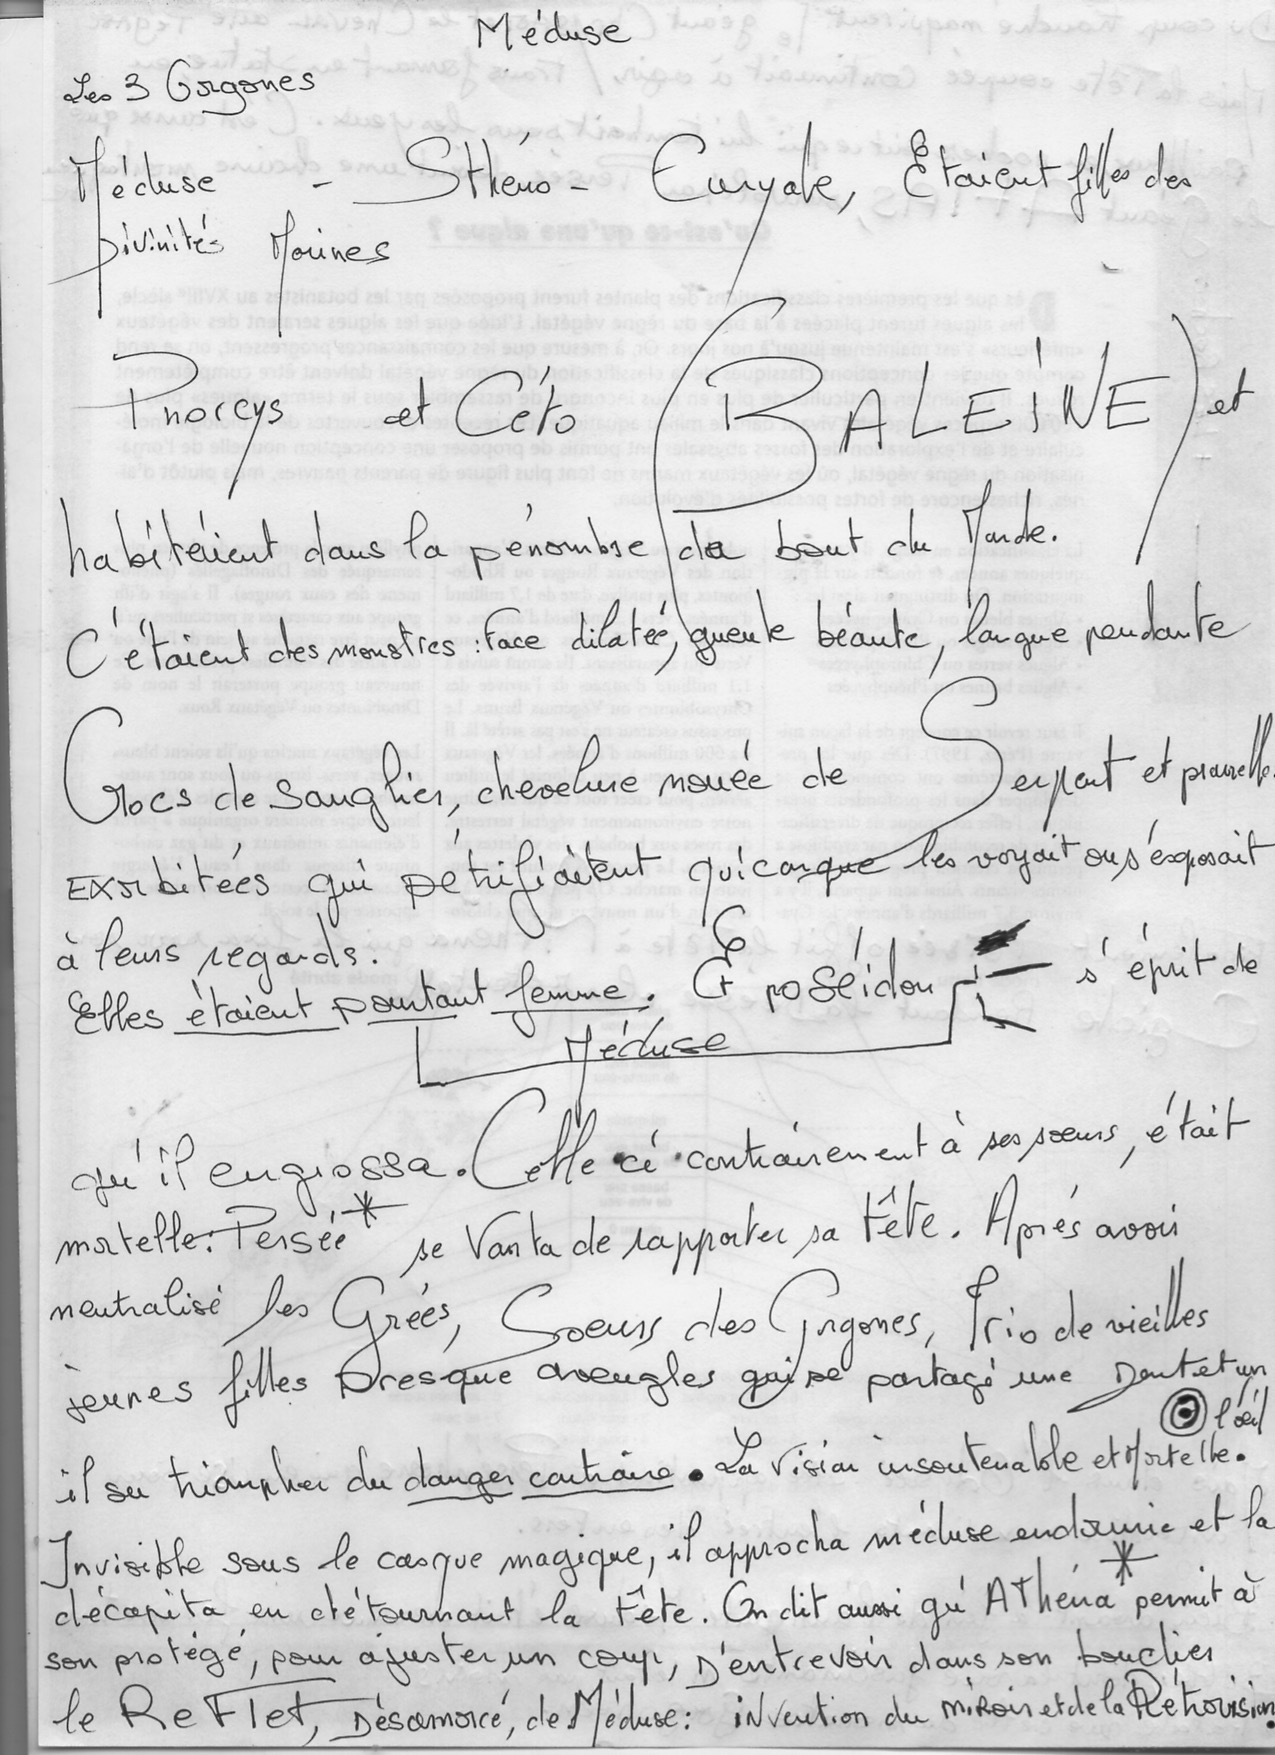 Méduse
Les 3 Gorgones
Méduse - Sthéno - Euryale, Etaient filles des
Divinités Marines
Phorcys et Céto (BALEINE) et
habitaient dans la pénombre du bout du Monde.
C'étaient des monstres : Face dilatée, gueule béante, langue pendante
Crocs de sanglier, chevelure nouée de Serpent et prunelle
EXorbitées qui pétrifiaient quiconque les voyait ou s'exposait
à leurs regards.
Elles étaient pourtant femme. Et poséidon s'éprit de
Méduse
qu'il engrossa. Celle ci contrairement à ses sœurs, était
mortelle. Persée* se Vanta de rapporter sa tête. Après avoir
neutralisé les Grées, Soeurs des Gorgones, Trio de vieilles
jeunes filles presque aveugles qui se partagé une Dent et un
l'œil
il su triompher du danger contraire. La vision insoutenable et Mortelle.
Invisible sous le casque magique, il approcha méduse endormie et la
décapita en détournant la tête. On dit aussi qu'Athéna* permit à
son protégé, pour ajuster un coup, D'entrevoir dans son bouclier
le ReFlet, Désamorcé, de Méduse : invention du miroir et de la Rétrovision.